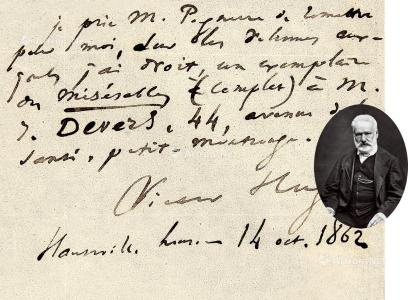 je prie M. Pagnerre de remettre
pour moi, sur les volumes aux-
quels j'ai droit, un exemplaire
des Misérables (complet) à M.
J. Devers, 44, avenue de
Santé, petit-montrouge.
Victor Hug
Hauteville house 14 oct. 1862